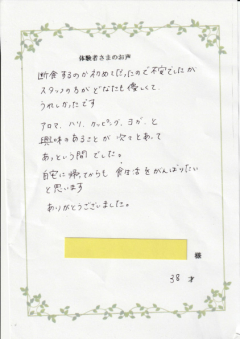 体験者さまのお声
断食するのが初めてだったので不安でしたが
スタッフの方がどなたも優しくて
うれしかったです
アロマ、ハリ、カッピング、ヨガ、と
興味のあることが次々とあって
あっという間でした。
自宅に帰ってからも食生活をがんばりたい
と思います
ありがとうございました。
様
38 才